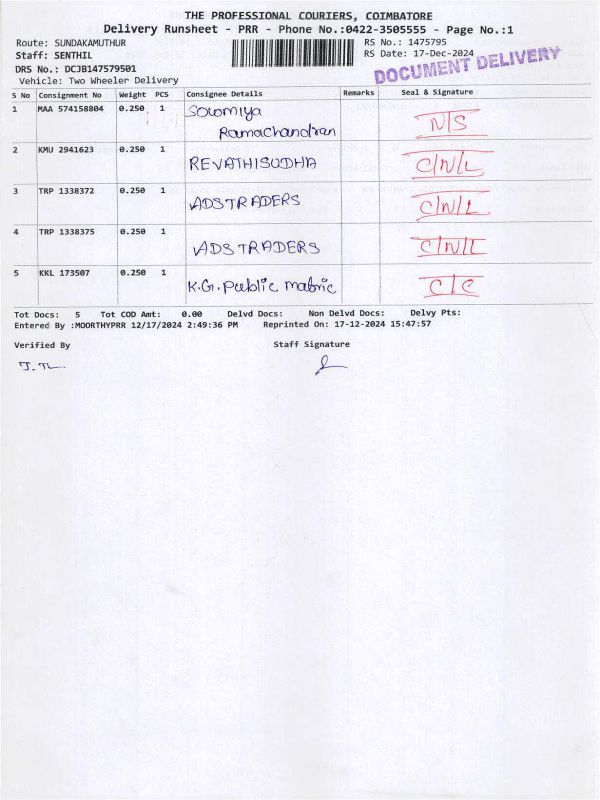 THE PROFESSIONAL COURIERS, COIMBATORE
Delivery Runsheet - PRR - Phone No.:0422-3505555 - Page No.:1
Route: SUNDAKAMUTHUR RS No.: 1475795
Staff: SENTHIL RS Date: 17-Dec-2024
DRS No.: DCJB147579501
DOCUMENT DELIVERY
Vehicle: Two Wheeler Delivery
S No Consignment No Weight PCS Consignee Details Remarks Seal & Signature
1 MAA 574158804 0.250 1 Sowmiya
Ramachandran N/S
2 KMU 2941623 0.250 1 REVATHISUDHA C/N/L
3 TRP 1338372 0.250 1 ADSTRADERS C/N/L
4 TRP 1338375 0.250 1 ADSTRADERS C/N/L
5 KKL 173507 0.250 1 K.G. Public matric C/C
Tot Docs: 5 Tot COD Amt: 0.00 Delvd Docs: Non Delvd Docs: Delvy Pts:
Entered By :MOORTHYPRR 12/17/2024 2:49:36 PM Reprinted On: 17-12-2024 15:47:57
Verified By Staff Signature